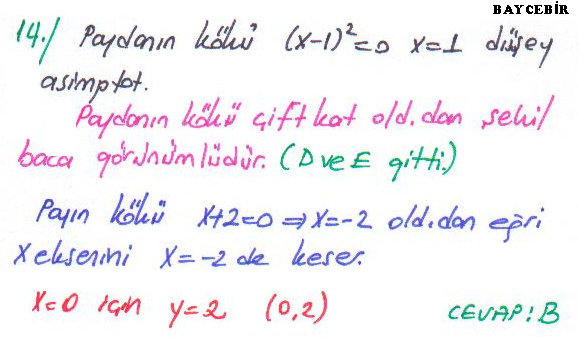 BAYCEBİR
14./ Paydanın kökü (x-1)²=0 x=1 düşey
asimptot.
Paydanın kökü çift kat old.dan şekil
baca görünümlüdür. (D ve E gitti.)
Payın kökü x+2=0 ⇒ x=-2 old.dan eğri
x eksenini x=-2 de keser.
x=0 için y=2 (0,2) CEVAP: B